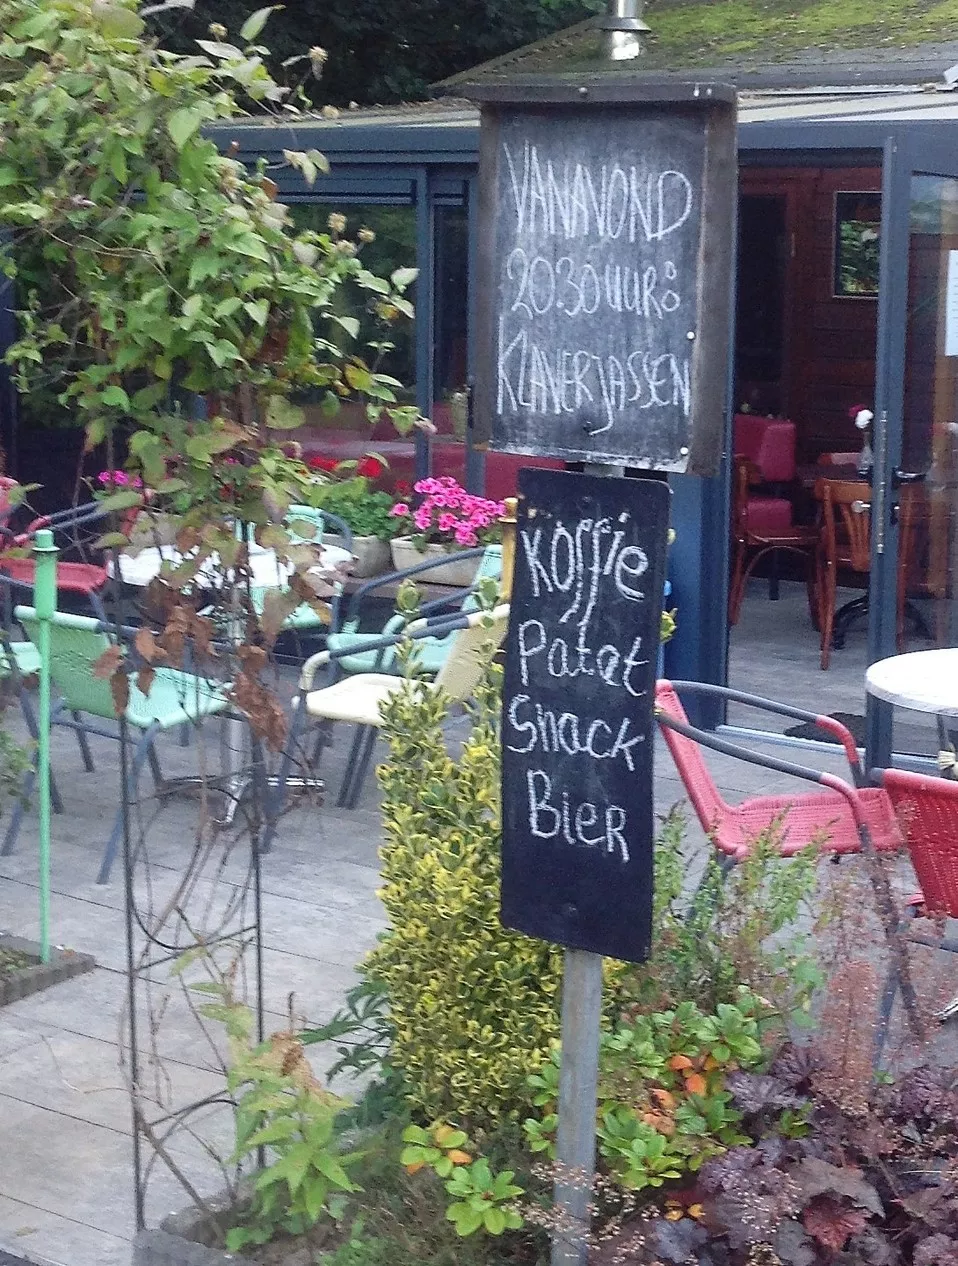 VANAVOND
20.30 UUR:
KLAVERJASSEN
Koffie
Patat
Snack
Bier